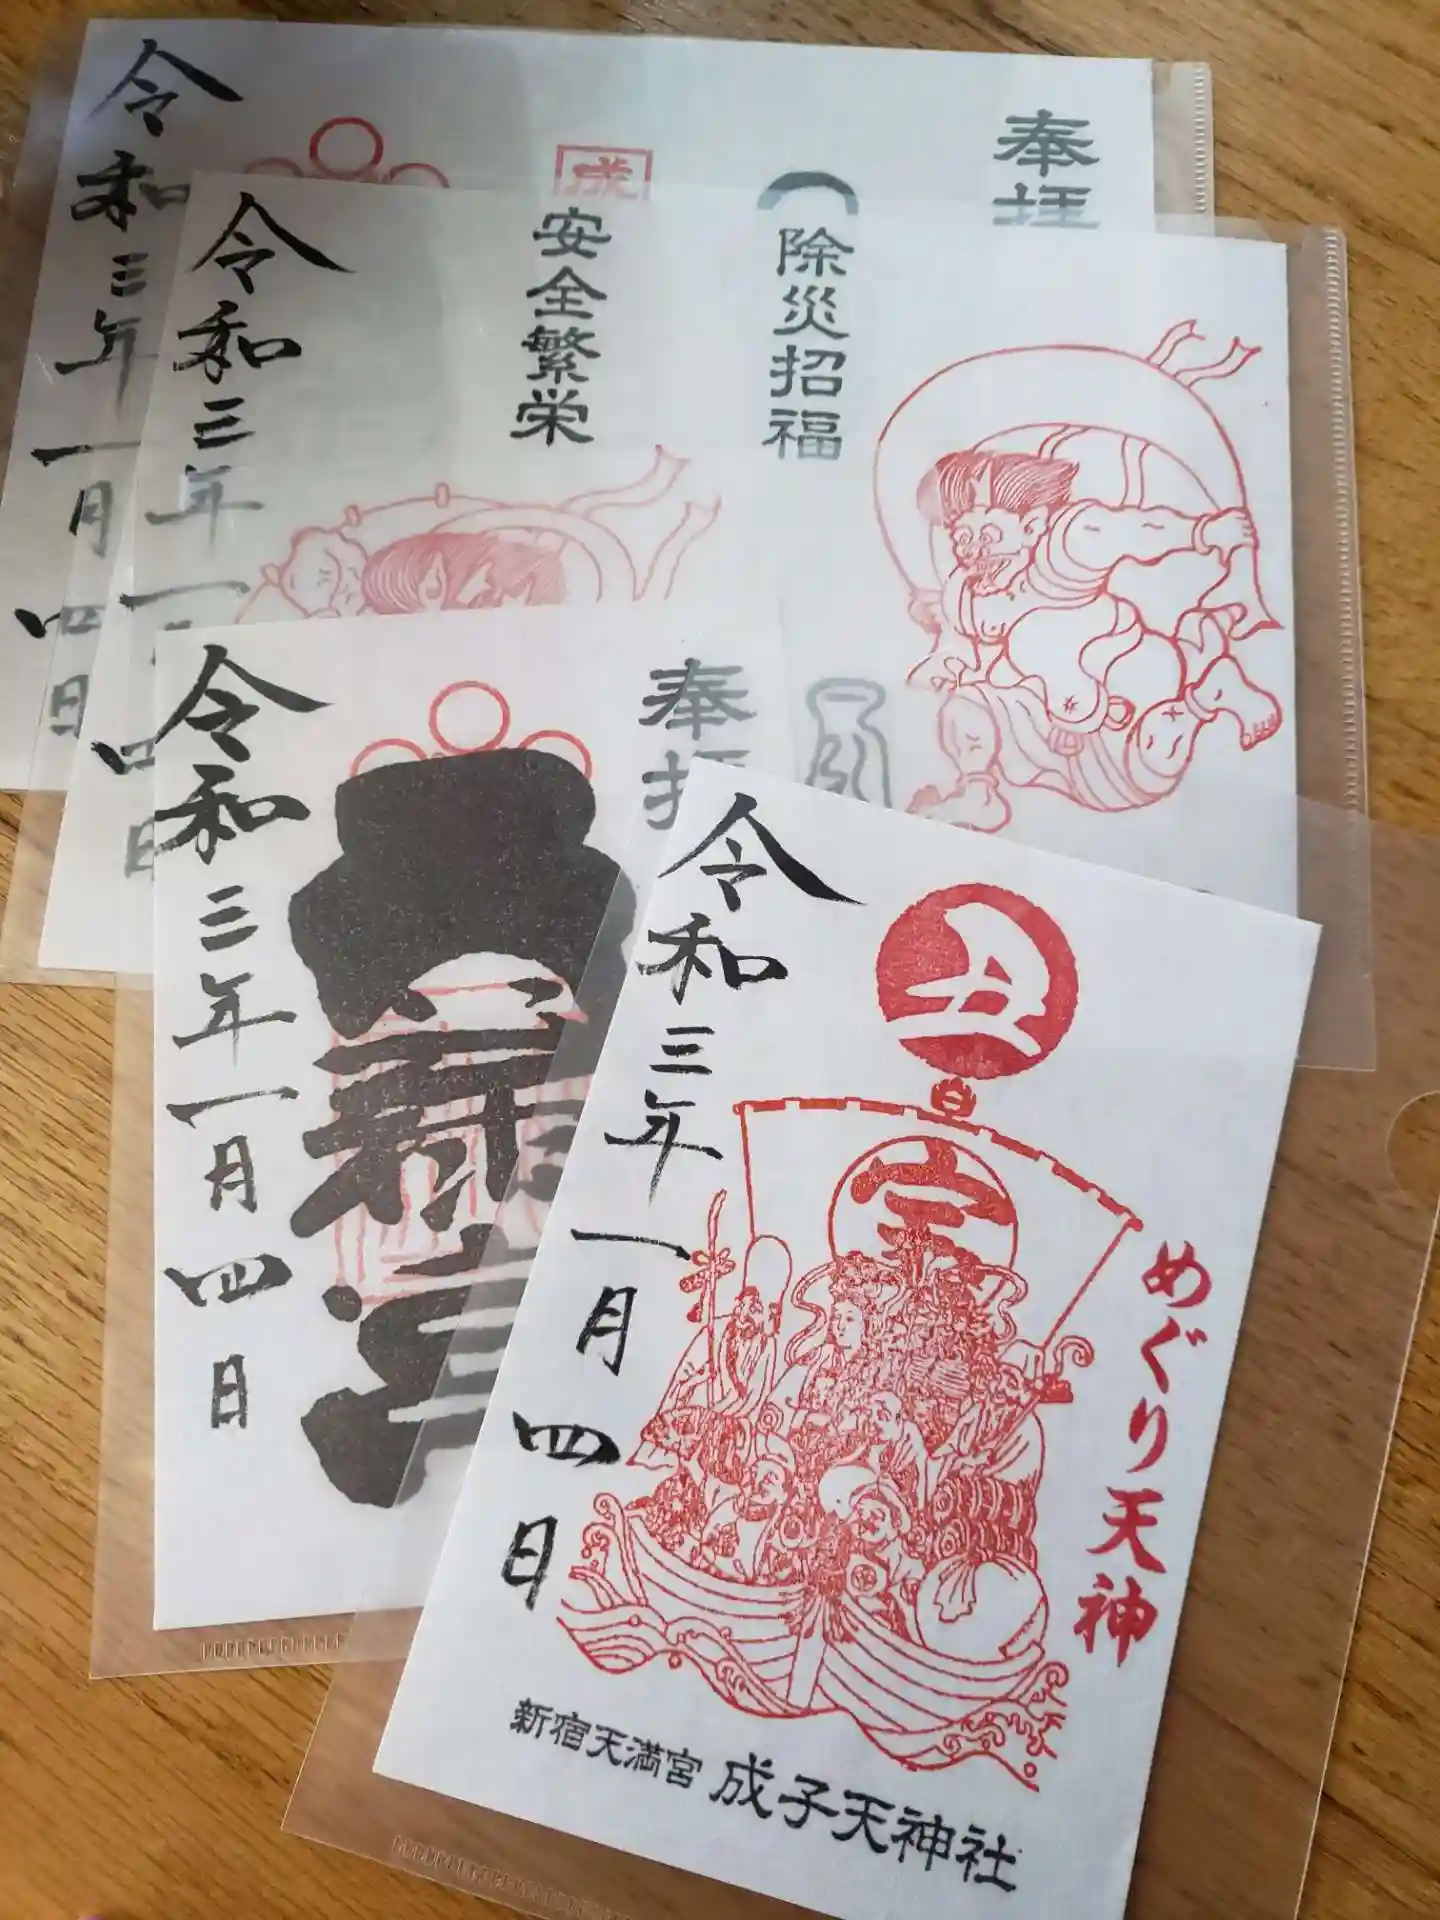 令和三年一月四日
成
奉拝
令和三年一
日
安全繁栄
除災招福
風
令和三年一月四日
奉拝
令和三年一月四日
丑
宝
めぐり天神
新宿天満宮 成子天神社